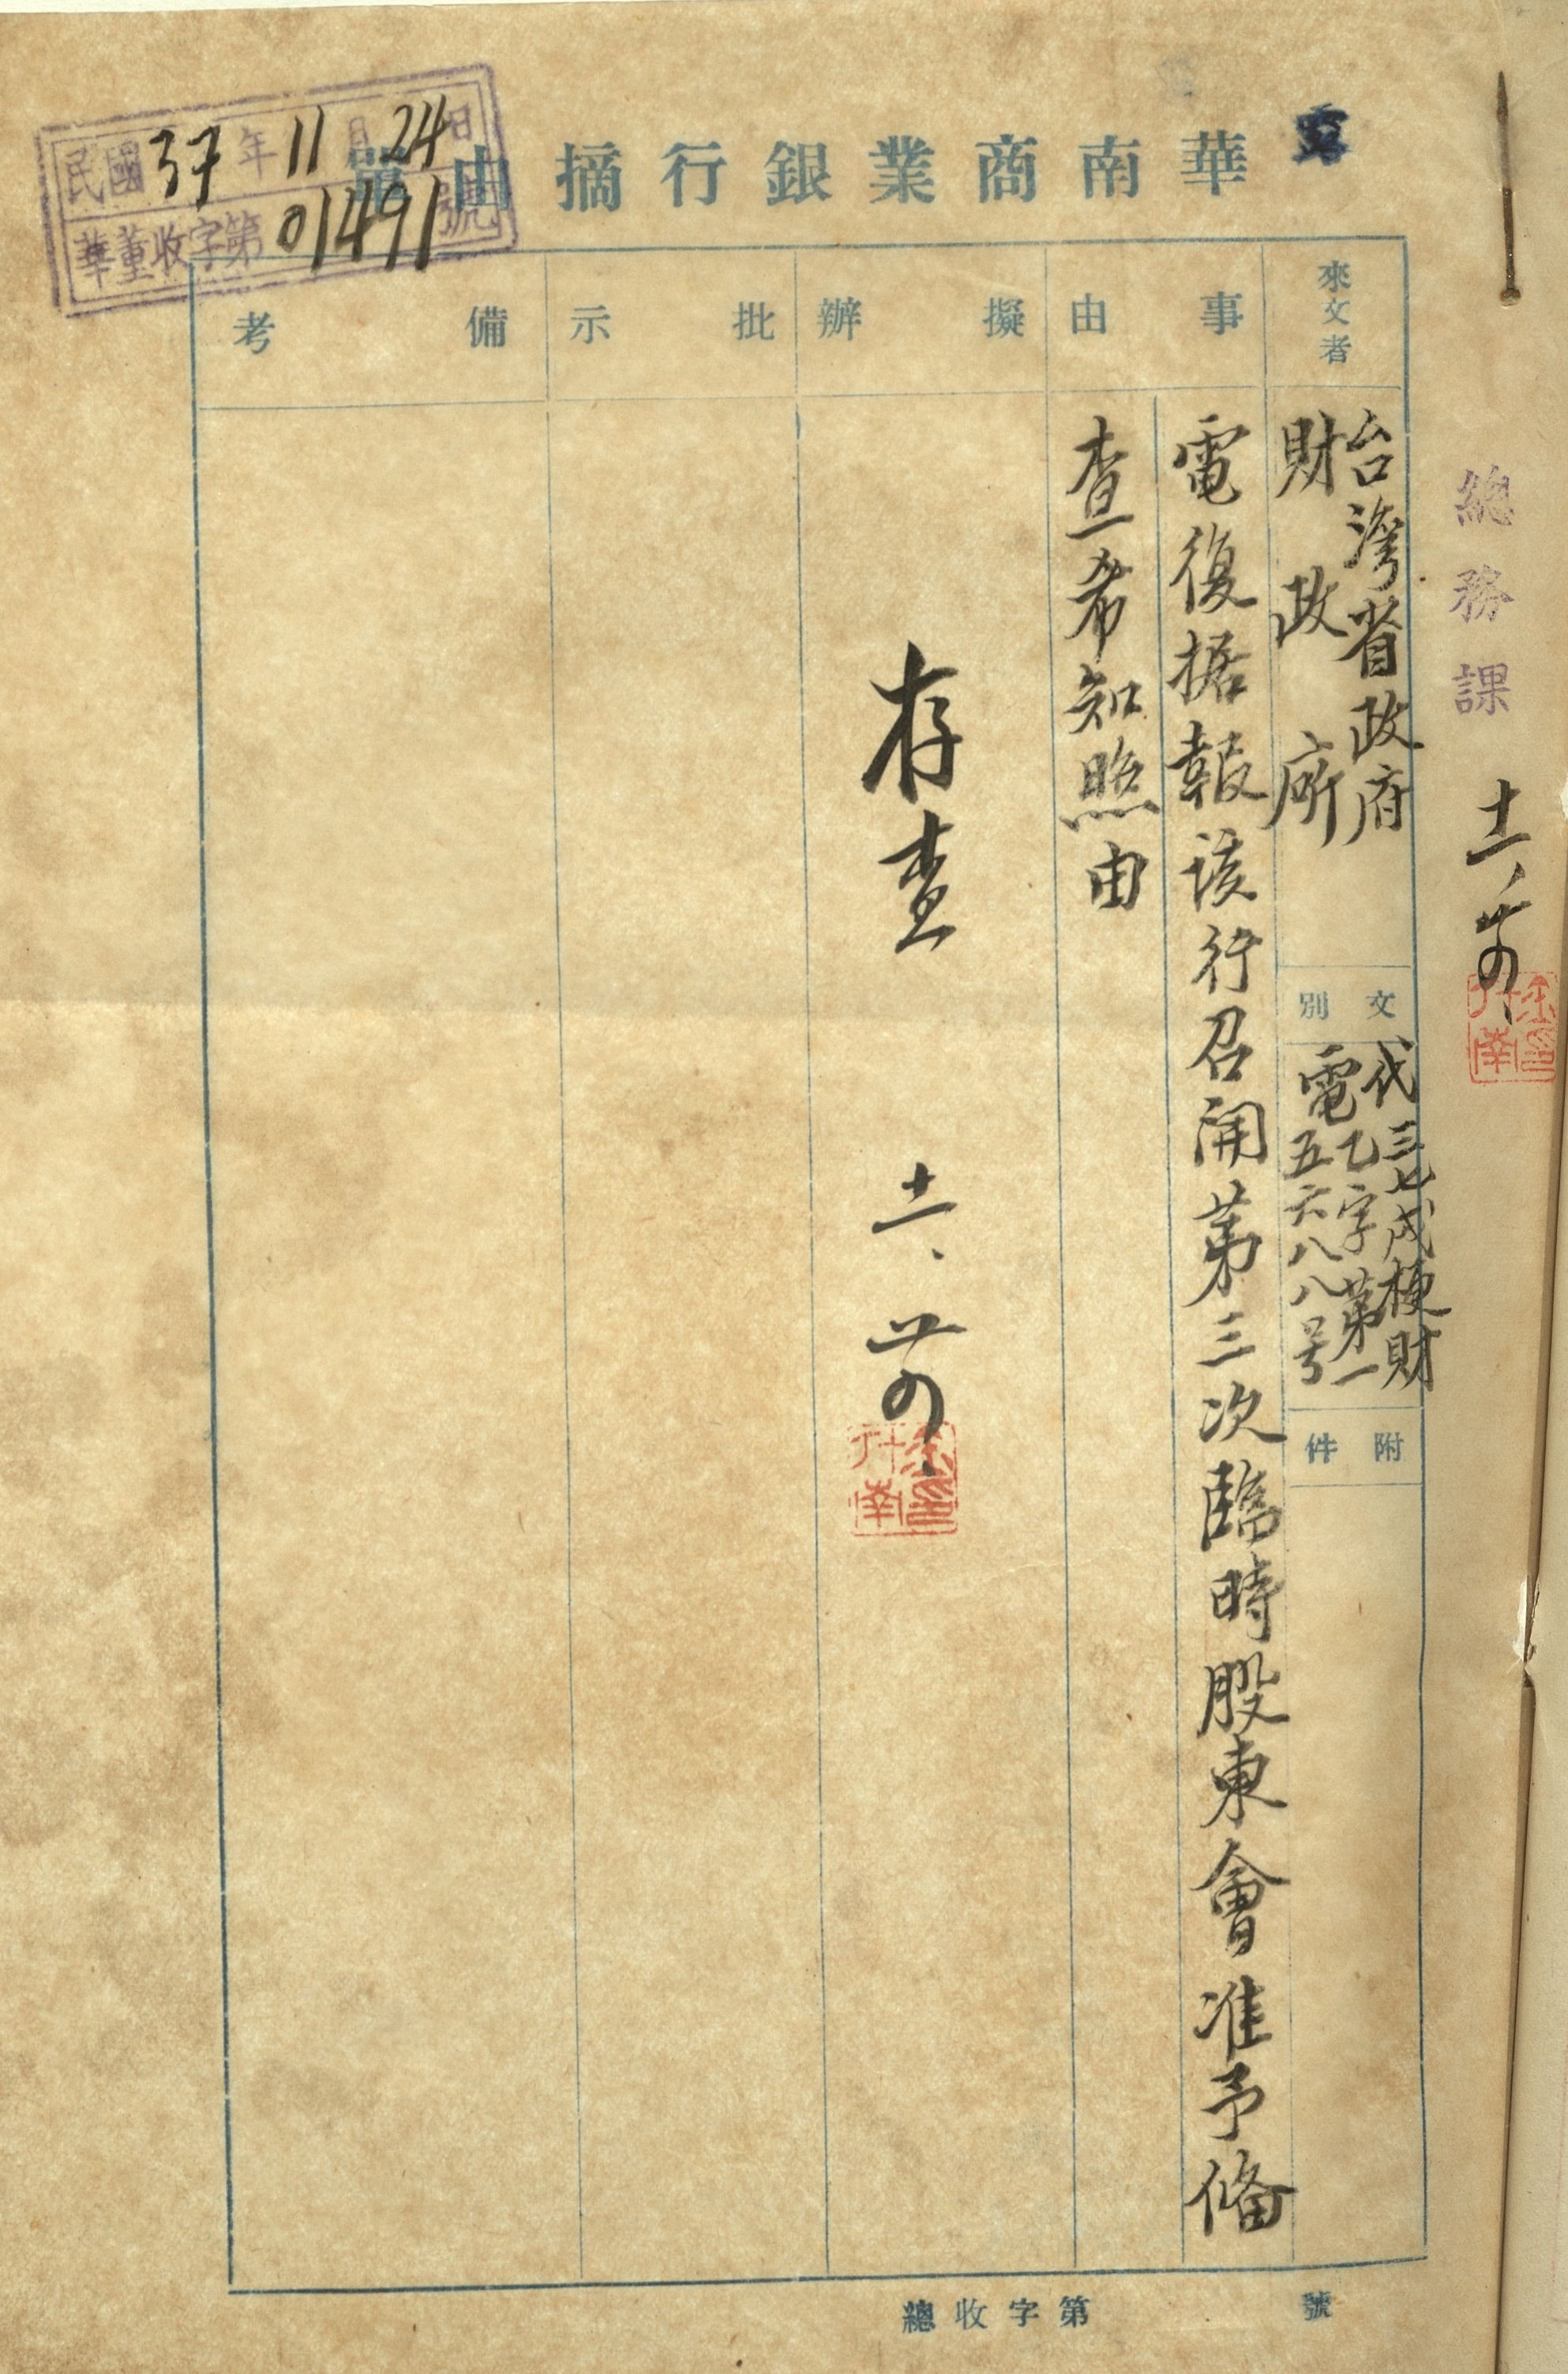 華南商業銀行摘由單
民國37年11月24日
華董收字第01491號
總務課
十一、廿四
來文者
台灣省政府
財政廳
文別
代電
三七戌梗財
乙字第一
五六八八号
附件
事由
電復据報該行召開第三次臨時股東會准予備
查希知照由
擬辦
存查
十一、廿四
批示
備考
總收字第 號